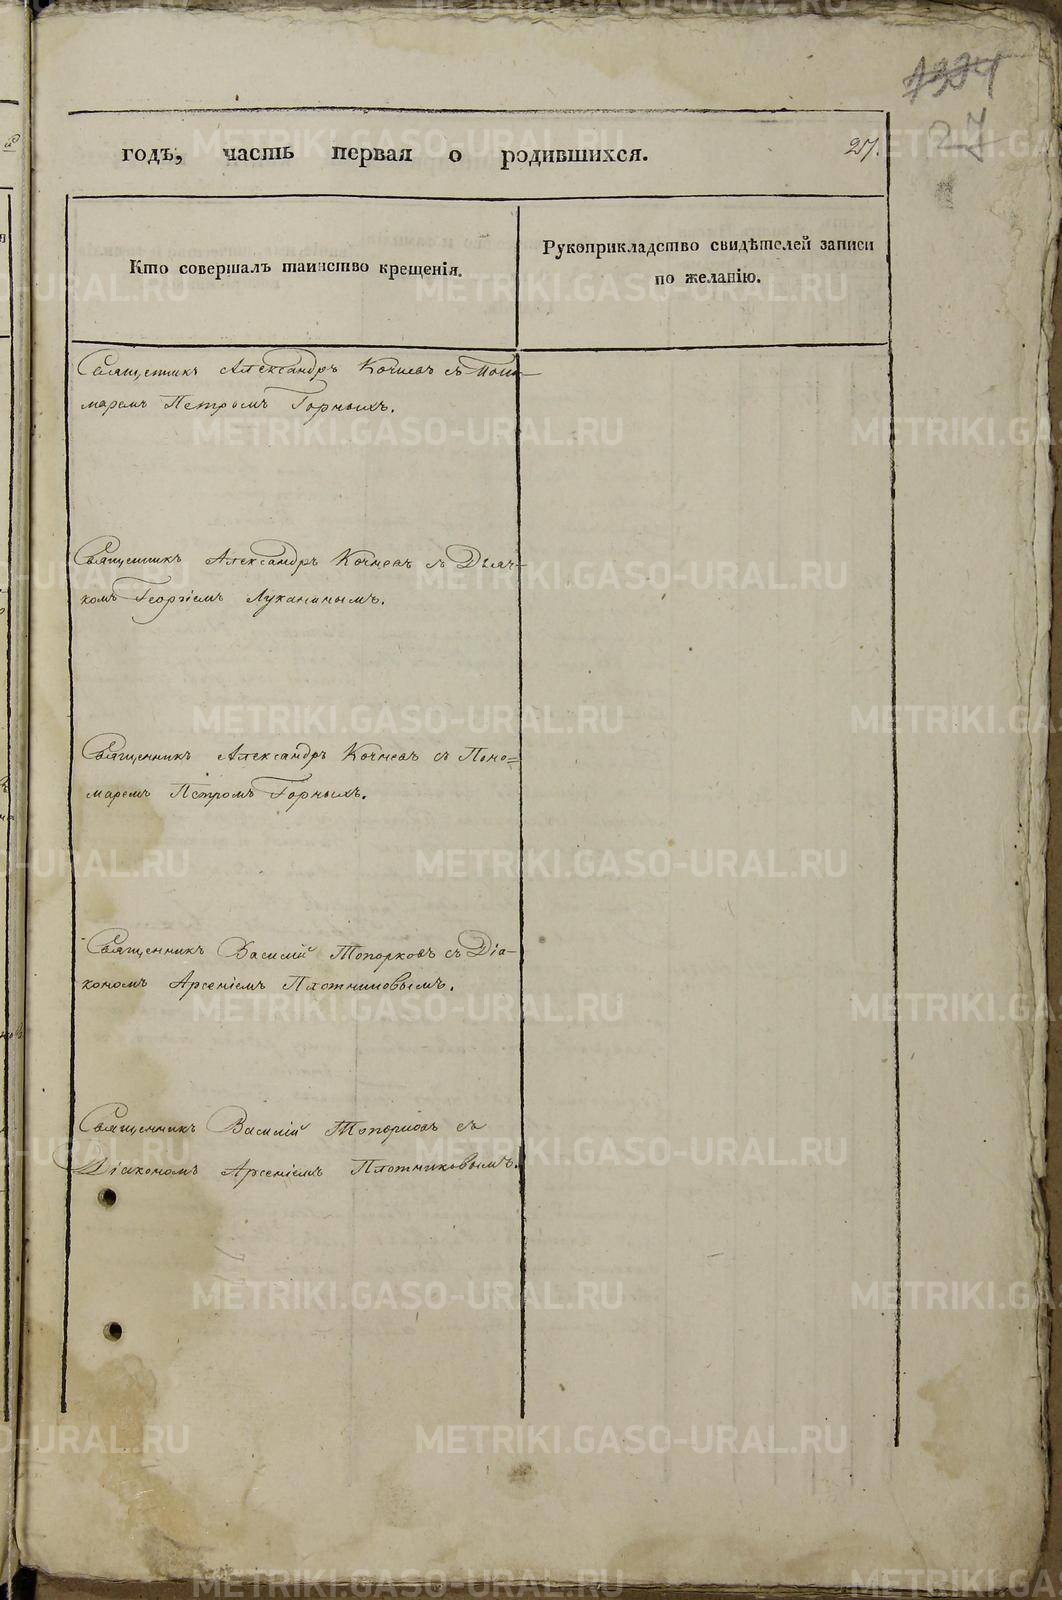 27
годъ, часть первая о родившихся. 27.
Кто совершалъ таинство крещенія.
Рукоприкладство свидѣтелей записи
по желанію.
Священникъ Александръ Кочневъ съ Поно-
маремъ Петромъ Горныхъ.
Священникъ Александръ Кочневъ съ Дьяч-
комъ Георгіемъ Луканинымъ.
Священникъ Александръ Кочневъ съ Поно=
маремъ Петромъ Горныхъ.
Священникъ Василій Топорковъ съ Діа-
кономъ Арсеніемъ Плотниковымъ.
Священникъ Василій Топорковъ съ
Діакономъ Арсеніемъ Плотниковымъ.
METRIKI.GASO-URAL.RU